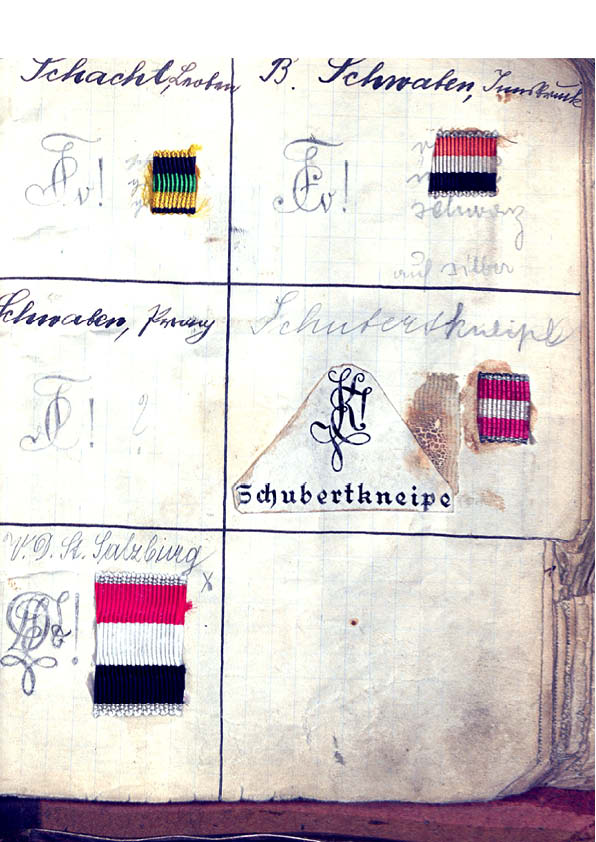 Schacht, Leoben
B. Schwaben, Innsbruck
schwarz
auf silber
Schwaben, Prag
?
Schubertkneipe
Schubertkneipe
V.D.St. Salzburg
x